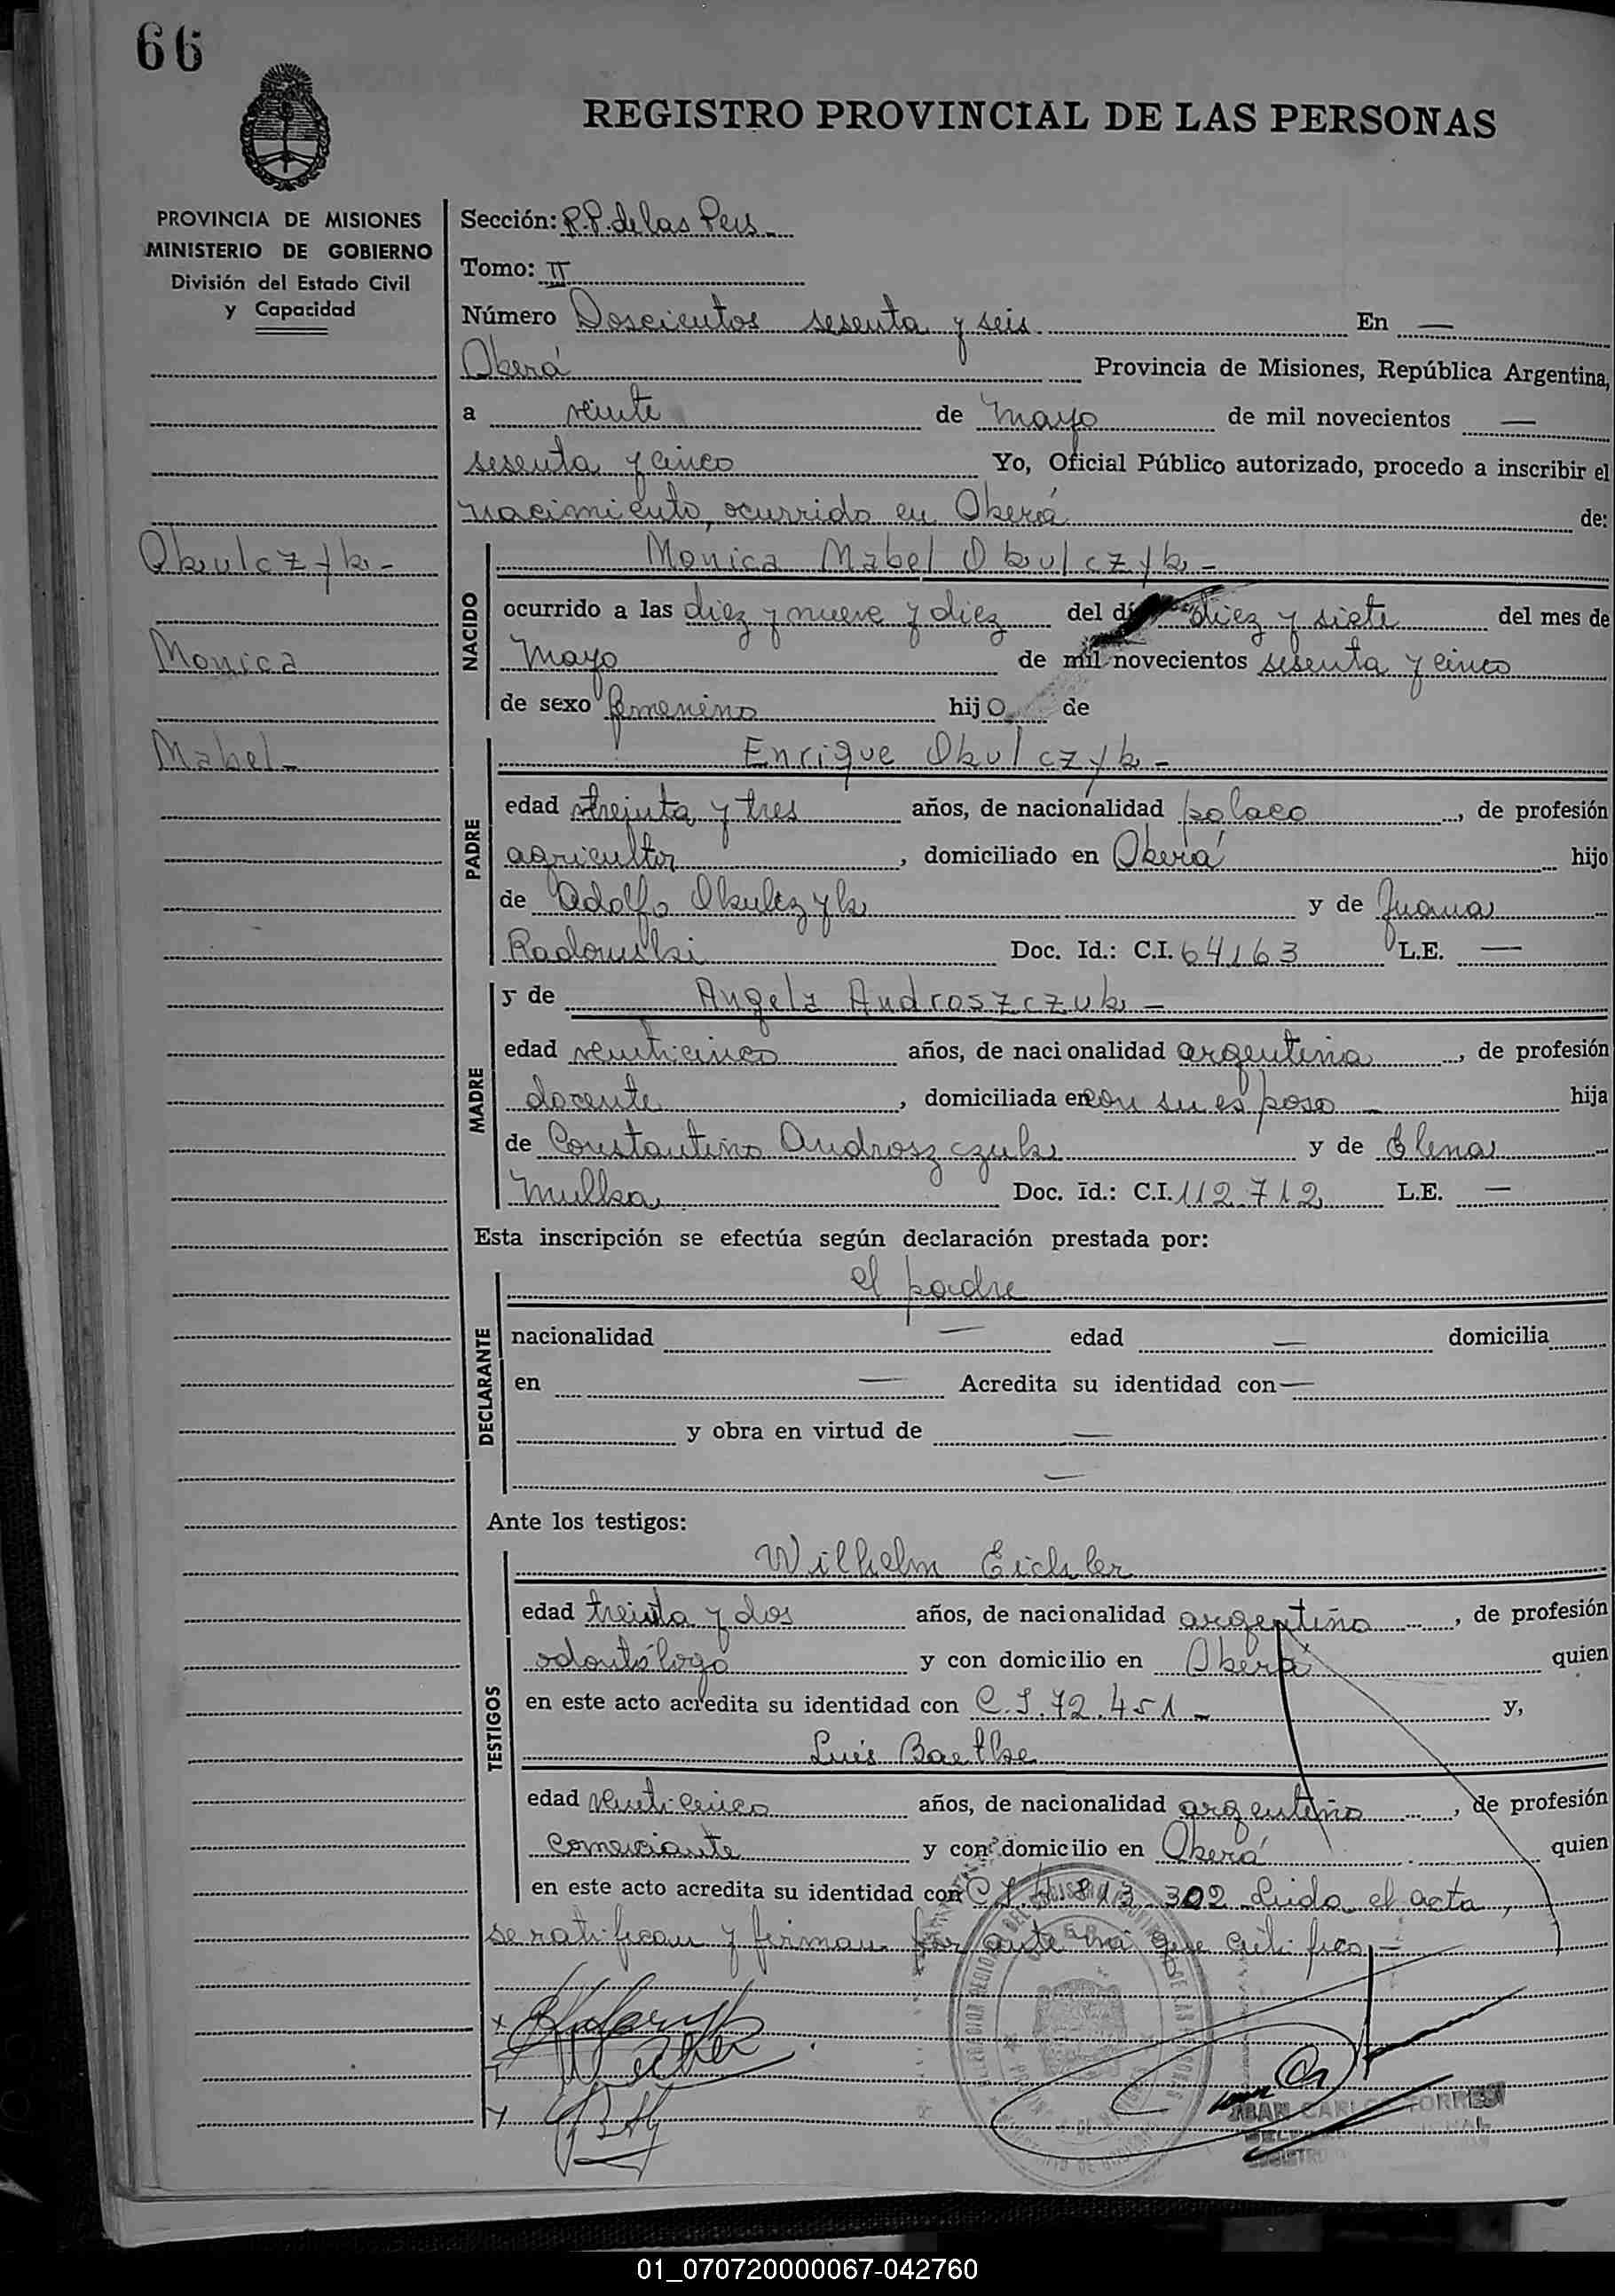 66
REGISTRO PROVINCIAL DE LAS PERSONAS
PROVINCIA DE MISIONES
MINISTERIO DE GOBIERNO
División del Estado Civil
y Capacidad
Sección: R.P. de las Pers.
Tomo: II
Número Doscientos sesenta y seis En —
Oberá Provincia de Misiones, República Argentina,
a veinte de Mayo de mil novecientos —
sesenta y cinco Yo, Oficial Público autorizado, procedo a inscribir el
nacimiento, ocurrido en Oberá de:
Okulczyk-
Monica
Mabel-
NACIDO
Monica Mabel Okulczyk-
ocurrido a las diez y nueve y diez del diez y siete del mes de
Mayo de mil novecientos sesenta y cinco
de sexo femenino hijo de
PADRE
Enrique Okulczyk-
edad treinta y tres años, de nacionalidad polaco, de profesión
agricultor, domiciliado en Oberá hijo
de Adolfo Okulczyk y de Juana
Radomski Doc. Id.: C.I. 64163 L.E. —
MADRE
y de Angela Androszczuk-
edad veinticinco años, de nacionalidad argentina, de profesión
docente, domiciliada en con su esposo — hija
de Constantino Androszczuk y de Elena
Doc. Id.: C.I. 112.712 L.E. —
Esta inscripción se efectúa según declaración prestada por:
DECLARANTE
el padre
nacionalidad — edad — domicilia
en — Acredita su identidad con —
y obra en virtud de —
—
Ante los testigos:
TESTIGOS
Wilhelm Eichler
edad treinta y dos años, de nacionalidad argentino, de profesión
odontólogo y con domicilio en Oberá quien
en este acto acredita su identidad con C.I. 72.451 - y,
Luis Baelke
edad veinticinco años, de nacionalidad argentino, de profesión
comerciante y con domicilio en Oberá quien
en este acto acredita su identidad con C.I. 302 Leida el acta,
se ratifican y firman por ante mi que certifico.-
JUAN CARLOS TORRES
01_070720000067-042760